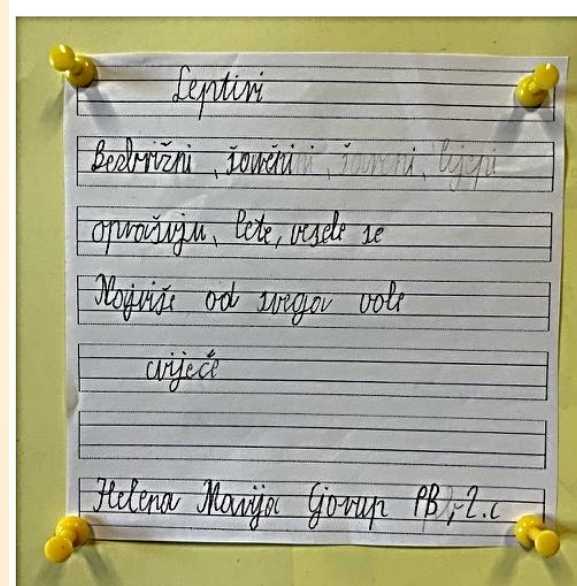 Leptiri
Bezbrižni, šareni, šareni, lijepi
oprašuju, lete, vesele se
Najviše od svega vole
cvijeće
Helena Marija PB, 2.c